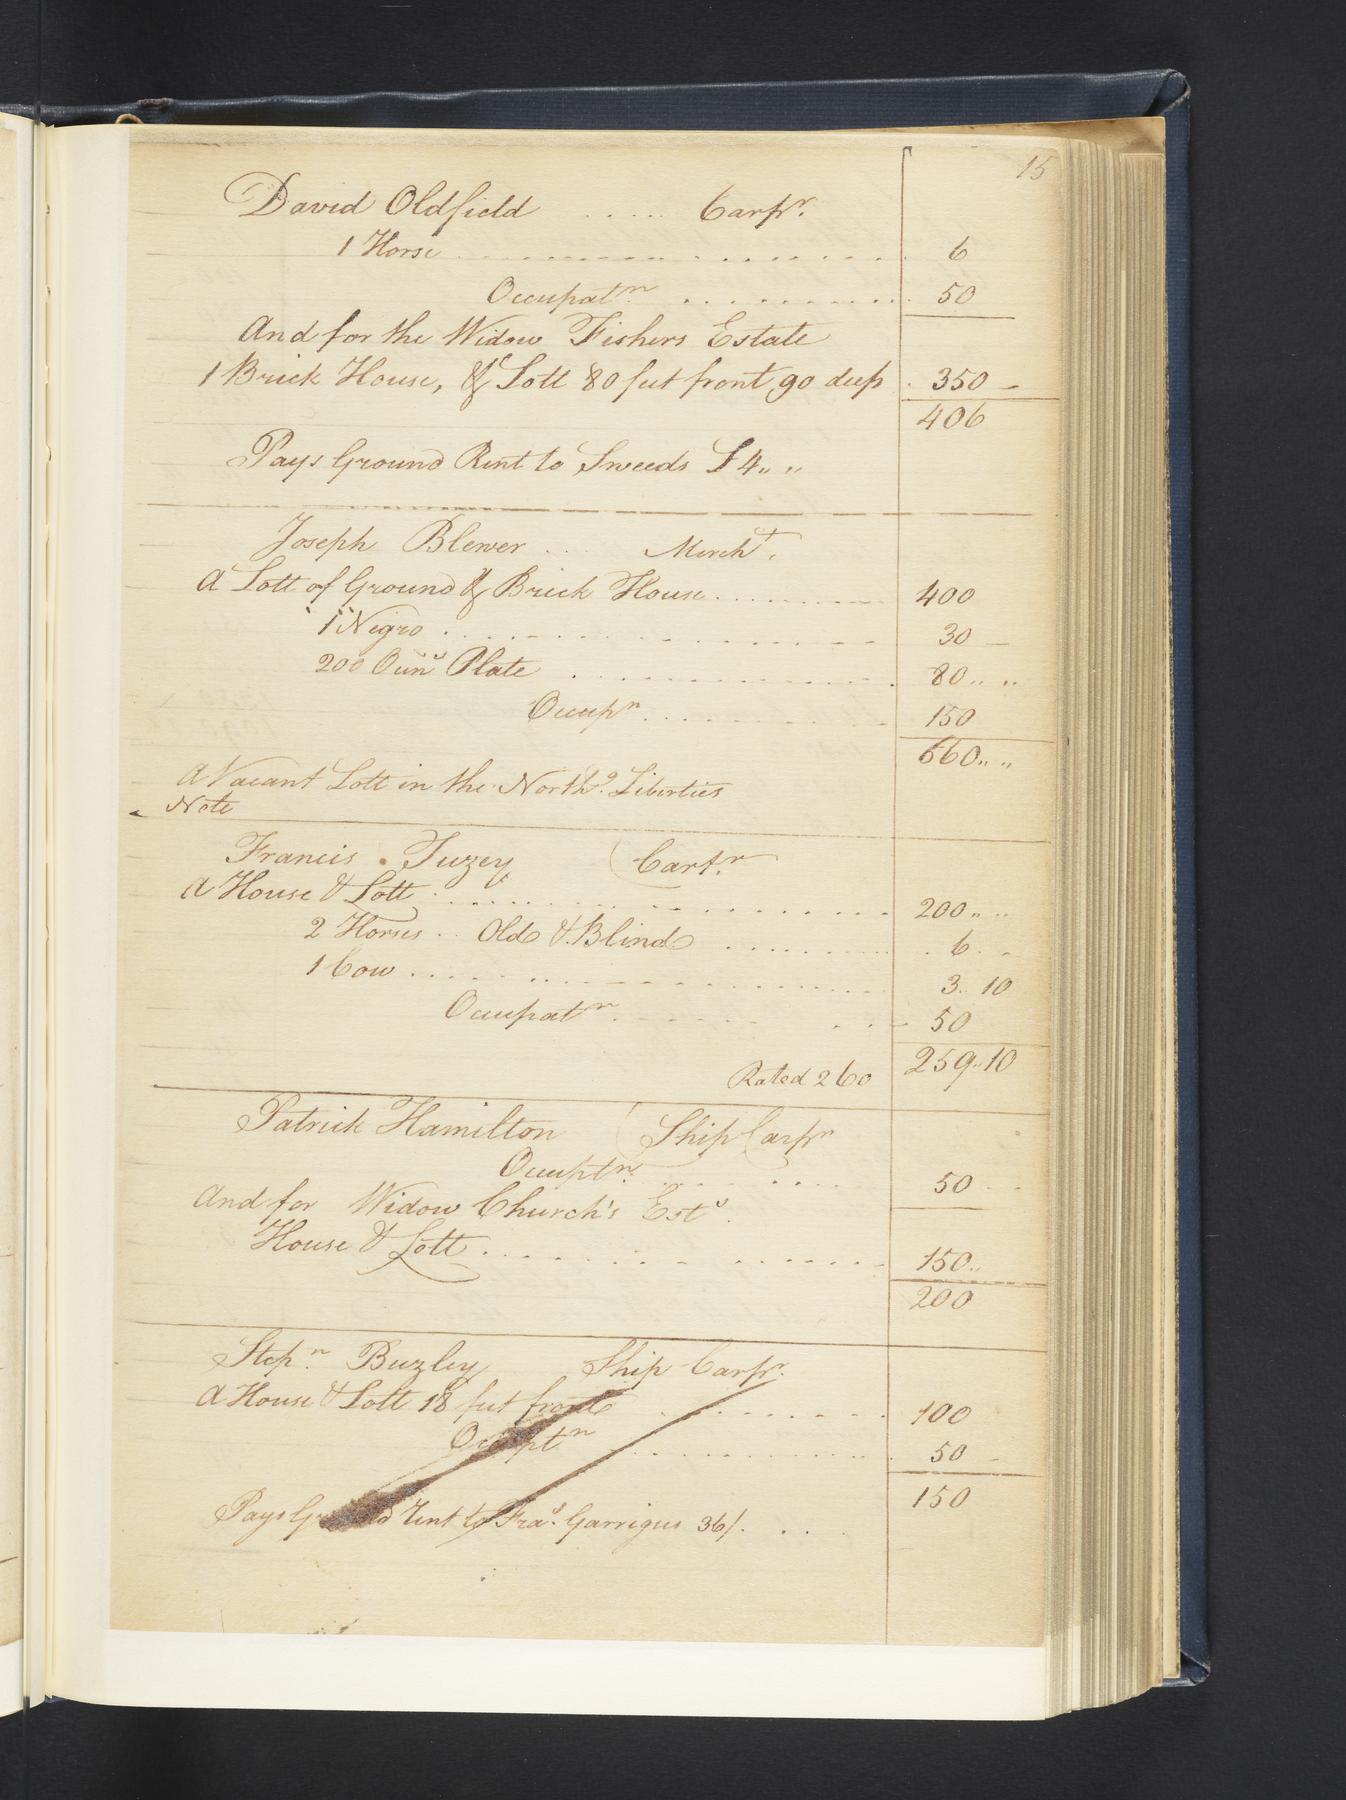 15
David Oldfield ..... Carpr.
1 Horse ........ 6
Occupatn ........ 50
And for the Widow Fishers Estate
1 Brick House, & Lott 80 feet front 90 deep . 350 –
406
Pays Ground Rent to Sweeds £4 " "
Joseph Blewer .... Mercht.
A Lott of Ground & Brick House ........ 400
1 Negro ........ 30 –
200 Ouns Plate ........ 80 " "
Occupn ........ 150
660 " "
A Vacant Lott in the Northn. Liberties
Note
Francis . Tuzey Carpr.
A House & Lott ........ 200 " "
2 Horses .. Old & Blind ........ 6 . –
1 Cow ........ 3 .. 10
Occupatn ........ 50
259 .. 10
Rated 260
Patrick Hamilton Ship Carpr
Occuptn. ........ 50 – –
And for Widow Church's Este.
House & Lott ........ 150 "
200
Stepn. Buzley Ship Carpr.
A House & Lott 18 feet front ........ 100
Occuptn ........ 50 –
150
Pays Ground Rent to Fras. Garrigus 36/. . . .